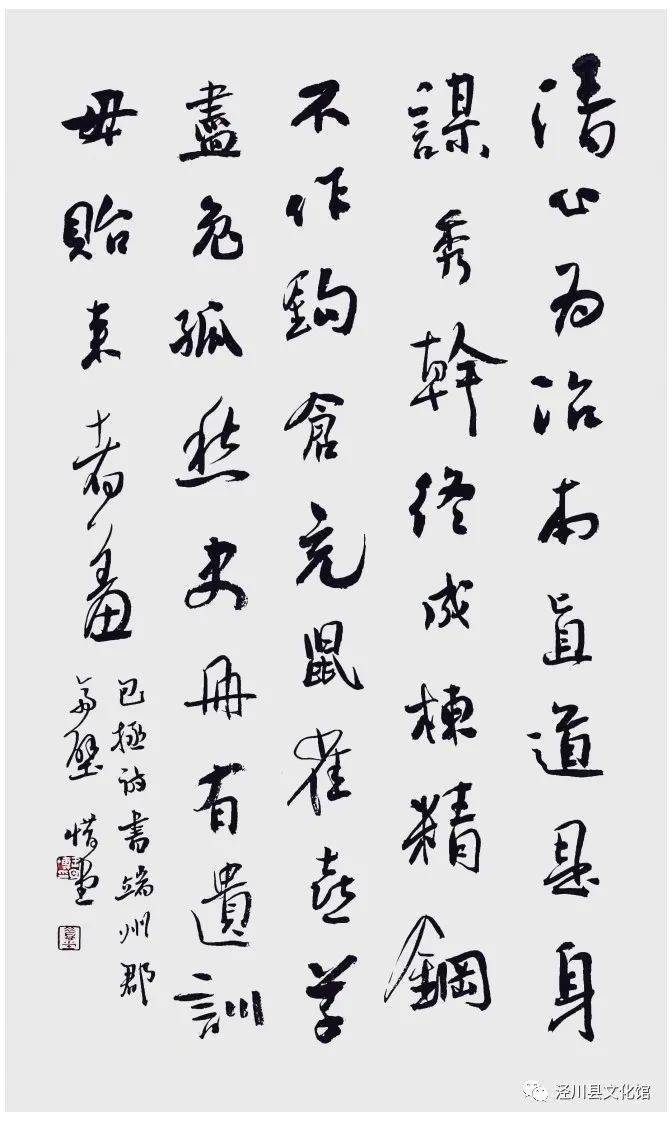 清心为治本直道是身
謀秀幹終成棟精鋼
不作鈎倉充鼠雀喜草
盡兔狐愁史冊有遺訓
毋貽来者羞
包拯詩書端州郡
斋壁 惜
泾川县文化馆